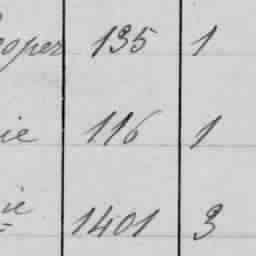 ooper 135 1
ie 116 1
ie 1401 3